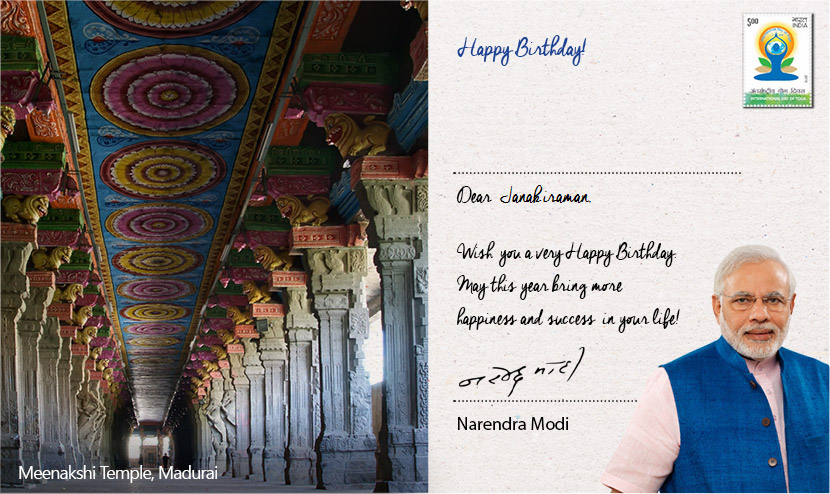 Happy Birthday!
5.00
भारत
INDIA
अंतर्राष्ट्रीय योग दिवस
INTERNATIONAL DAY OF YOGA
Dear Janakiraman,
Wish you a very Happy Birthday.
May this year bring more
happiness and success in your life!
नरेन्द्र मोदी
Narendra Modi
Meenakshi Temple, Madurai